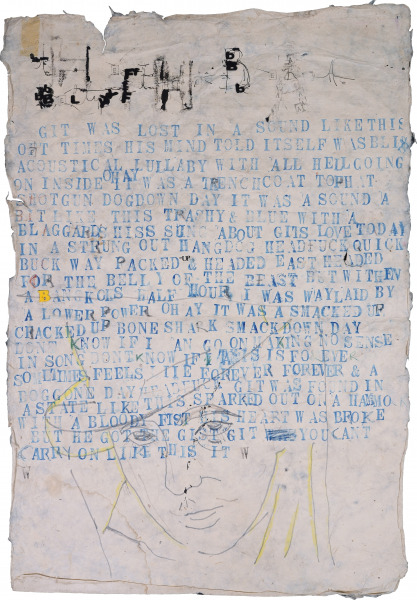 GIT WAS LOST IN A SOUND LIKE THIS
OFT TIMES HIS MIND TOLD ITSELF WAS
ACOUSTICAL LULLABY WITH ALL HELL GOING
ON INSIDE OH AY IT WAS A TRENCHCOAT TOPHAT
SHOTGUN DOGDOWN DAY IT WAS A SOUND A
BIT LIKE THIS & BLUE WITH A
BLAGGARDS KISS SUNG ABOUT GITS LOVE TODAY
IN A STRUNG OUT HANGDOG HEADFUCK QUICK
BUCK WAY PACKED & HEADED EAST HEADED
FOR THE BELLY OF THE BEAST BUT WITHEN
A HALF HOUR I WAS WAYLAID BY
A LOWER POWER OH AY IT WAS A SMACKED UP
CRACKED UP BONE SHACK SMACKDOWN DAY
DONT KNOW IF I GO ON MAKING NO SENSE
IN SONG DONT KNOW IF THIS IS
SOMETIMES FEELS LIKE FOREVER FOREVER & A
DAY GIT WAS FOUND IN
A STATE LIKE THIS SPARKED OUT ON A
WITH A BLOODY FIST HIS HEART WAS BROKE
BUT HE GOT THE GIST GIT YOU CANT
CARRY ON LIKE THIS IT W
W